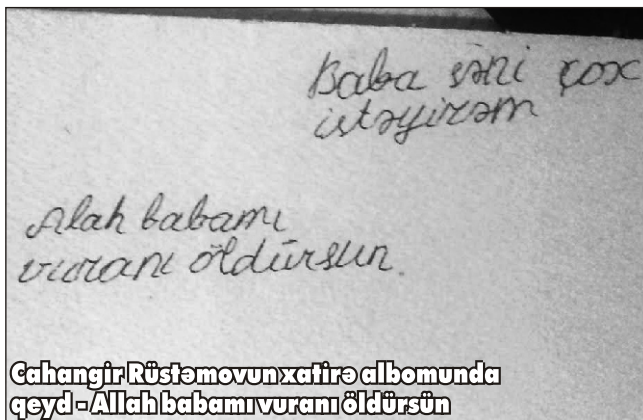 Baba səni çox
istəyirəm
Alah babamı
vuranı öldürsün.
Cahangir Rüstəmovun xatirə albomunda
qeyd - Allah babamı vuranı öldürsün